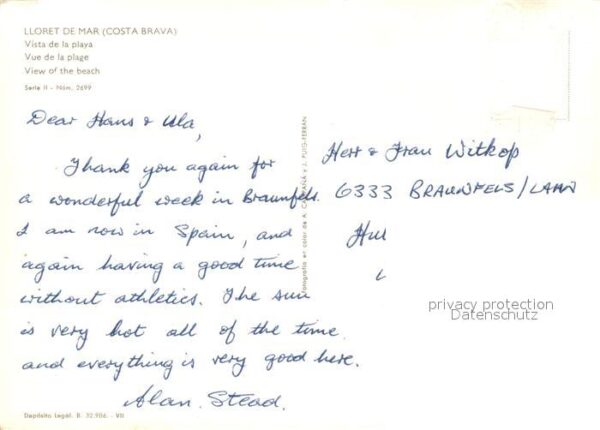 LLORET DE MAR (COSTA BRAVA)
Vista de la playa
Vue de la plage
View of the beach
Serie II - Núm. 2699
Dear Hans & Ula,
Thank you again for
a wonderful week in Braunfels.
I am now in Spain, and
again having a good time
without athletics. The sun
is very hot all of the time
and everything is very good here.
Alan Stead.
Depósito Legal. B. 32.906 - VII
Fotografía en color de A. CAMPAÑÁ y J. PUIG-FERRAN
Herr & Frau Witkop
6333 BRAUNFELS/LAHN
privacy protection
Datenschutz